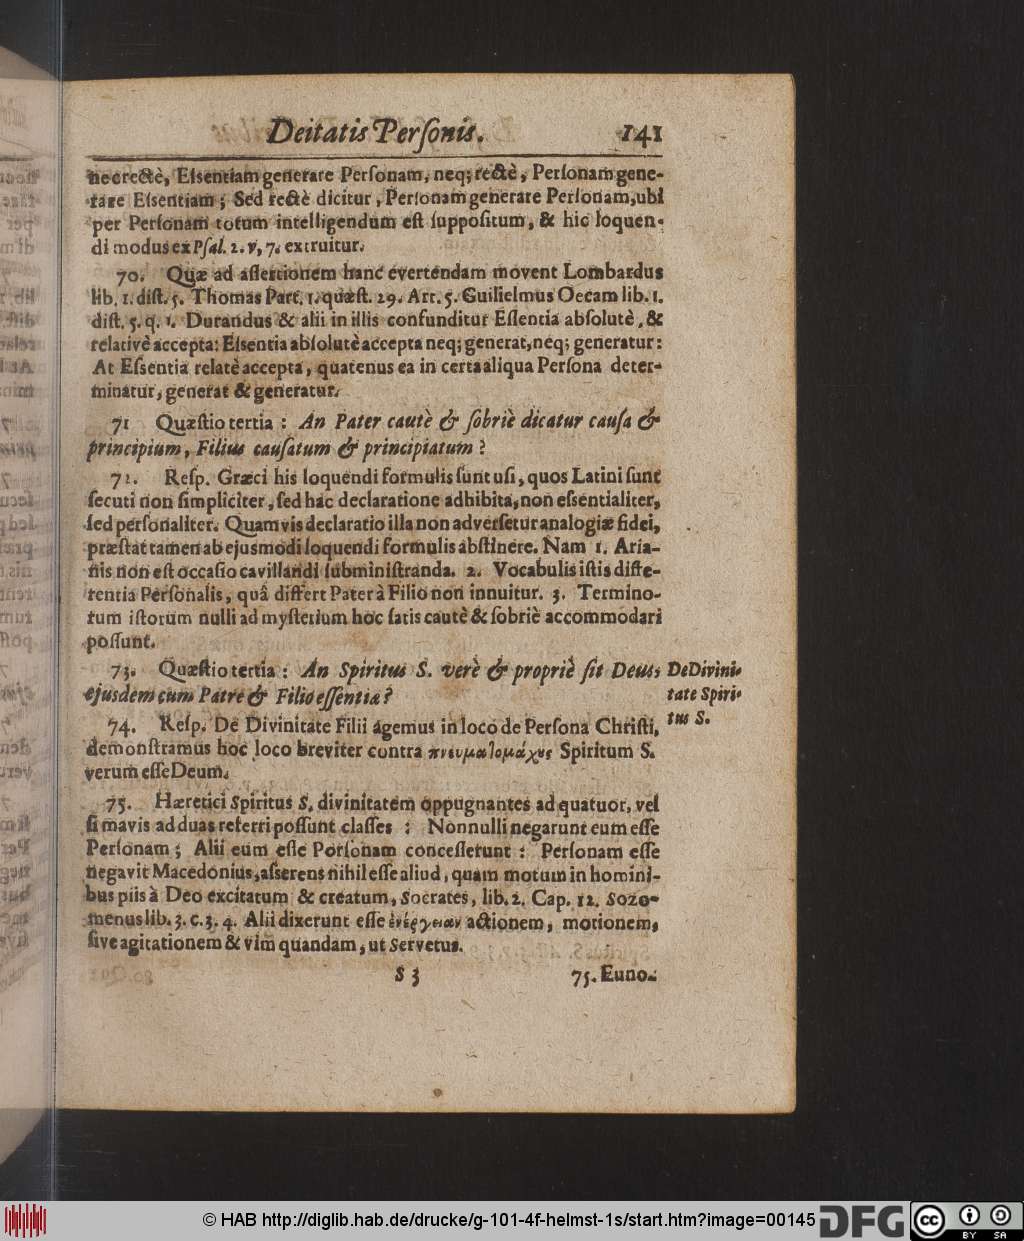 Deitatis Perſonis. 141
nec rectè, Eſsentiam generare Perſonam, neq; rectè, Perſonam gene-
rare Eſsentiam; Sed rectè dicitur, Perſonam generare Perſonam, ubi
per Perſonam totum intelligendum eſt ſuppoſitum, & hic loquen-
di modus ex Pſal. 2. v, 7. extruitur.
70. Quæ ad aſſertionem hanc evertendam movent Lombardus
lib. 1. diſt. 5. Thomas Part. 1. quæſt. 29. Art. 5. Guilielmus Occam lib. 1.
diſt. 5. q. 1. Durandus & alii in illis confunditur Eſſentia abſolutè, &
relativè accepta: Eſsentia abſolutè accepta neq; generat, neq; generatur:
At Eſsentia relatè accepta, quatenus ea in certa aliqua Perſona deter-
minatur, generat & generatur.
71 Quæſtio tertia: An Pater cautè & ſobriè dicatur cauſa &
principium, Filius cauſatum & principiatum?
72. Reſp. Græci his loquendi formulis ſunt uſi, quos Latini ſunt
ſecuti non ſimpliciter, ſed hac declaratione adhibita, non eſsentialiter,
ſed perſonaliter. Quamvis declaratio illa non adverſetur analogiæ fidei,
præſtat tamen ab ejusmodi loquendi formulis abſtinere. Nam 1. Aria-
nis non eſt occaſio cavillandi ſubminiſtranda. 2. Vocabulis iſtis diffe-
rentia Perſonalis, quâ differt Pater à Filio non innuitur. 3. Termino-
rum iſtorum nulli ad myſterium hoc ſatis cautè & ſobriè accommodari
poſſunt.
73. Quæſtio tertia: An Spiritus S. verè & propriè ſit Deus;
ejusdem cum Patre & Filio eſſentia?
De Divini-
tate Spiri-
tus S.
74. Reſp. De Divinitate Filii agemus in loco de Perſona Chriſti,
demonſtramus hoc loco breviter contra πνευμαλομάχȣς Spiritum S.
verum eſſe Deum.
75. Hæretici Spiritus S. divinitatem oppugnantes ad quatuor, vel
ſi mavis ad duas referri poſſunt claſſes: Nonnulli negarunt eum eſſe
Perſonam; Alii eum eſſe Porſonam conceſſerunt: Perſonam eſſe
negavit Macedonius, aſserens nihil eſſe aliud, quam motum in homini-
bus piis à Deo excitatum & creatum, Socrates, lib. 2. Cap. 12. Sozo-
menus lib. 3. c. 3. 4. Alii dixerunt eſſe ἐνέργειαν actionem, motionem,
ſive agitationem & vim quandam, ut Servetus.
S 3 75. Euno-
© HAB http://diglib.hab.de/drucke/g-101-4f-helmst-1s/start.htm?image=00145
DFG
cc BY SA